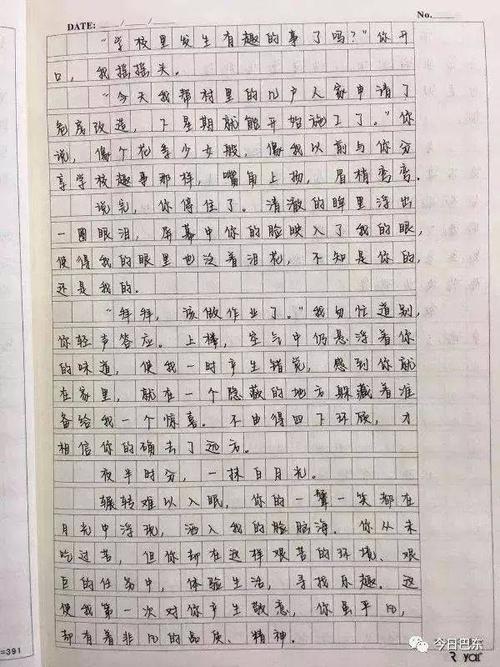 DATE: / /
No.
“学校里发生有趣的事了吗？”你开
口，我摇摇头。
“今天我帮村里的几户人家申请了
危房改造，下星期就能开始施工了。”你
说，像个花季少女般，像我以前与你分
享学校趣事那样，嘴角上扬，眉梢弯弯。
说完，你停住了。清澈的眸里浮出
一圈眼泪，屏幕中你的脸映入了我的眼，
使得我的眼里也泛着泪花，不知是你的，
还是我的。
“拜拜，该做作业了。”我匆忙道别，
你轻声答应。上楼，空气中仍悬浮着你
的味道，使我一时产生错觉，感到你就
在家里，就在一个隐蔽的地方躲藏着准
备给我一个惊喜。不由得四下环顾，才
相信你的确去了远方。
夜半时分，一抹白月光。
辗转难以入眠，你的一颦一笑都在
月光中浮现，洒入我的脑海。你从未
吃过苦，但你却在这样艰苦的环境、艰
巨的任务中，体验生活，寻找乐趣。这
使我第一次对你产生敬意，你虽平凡，
却有着非凡的品质、精神。
=391
今日巴东